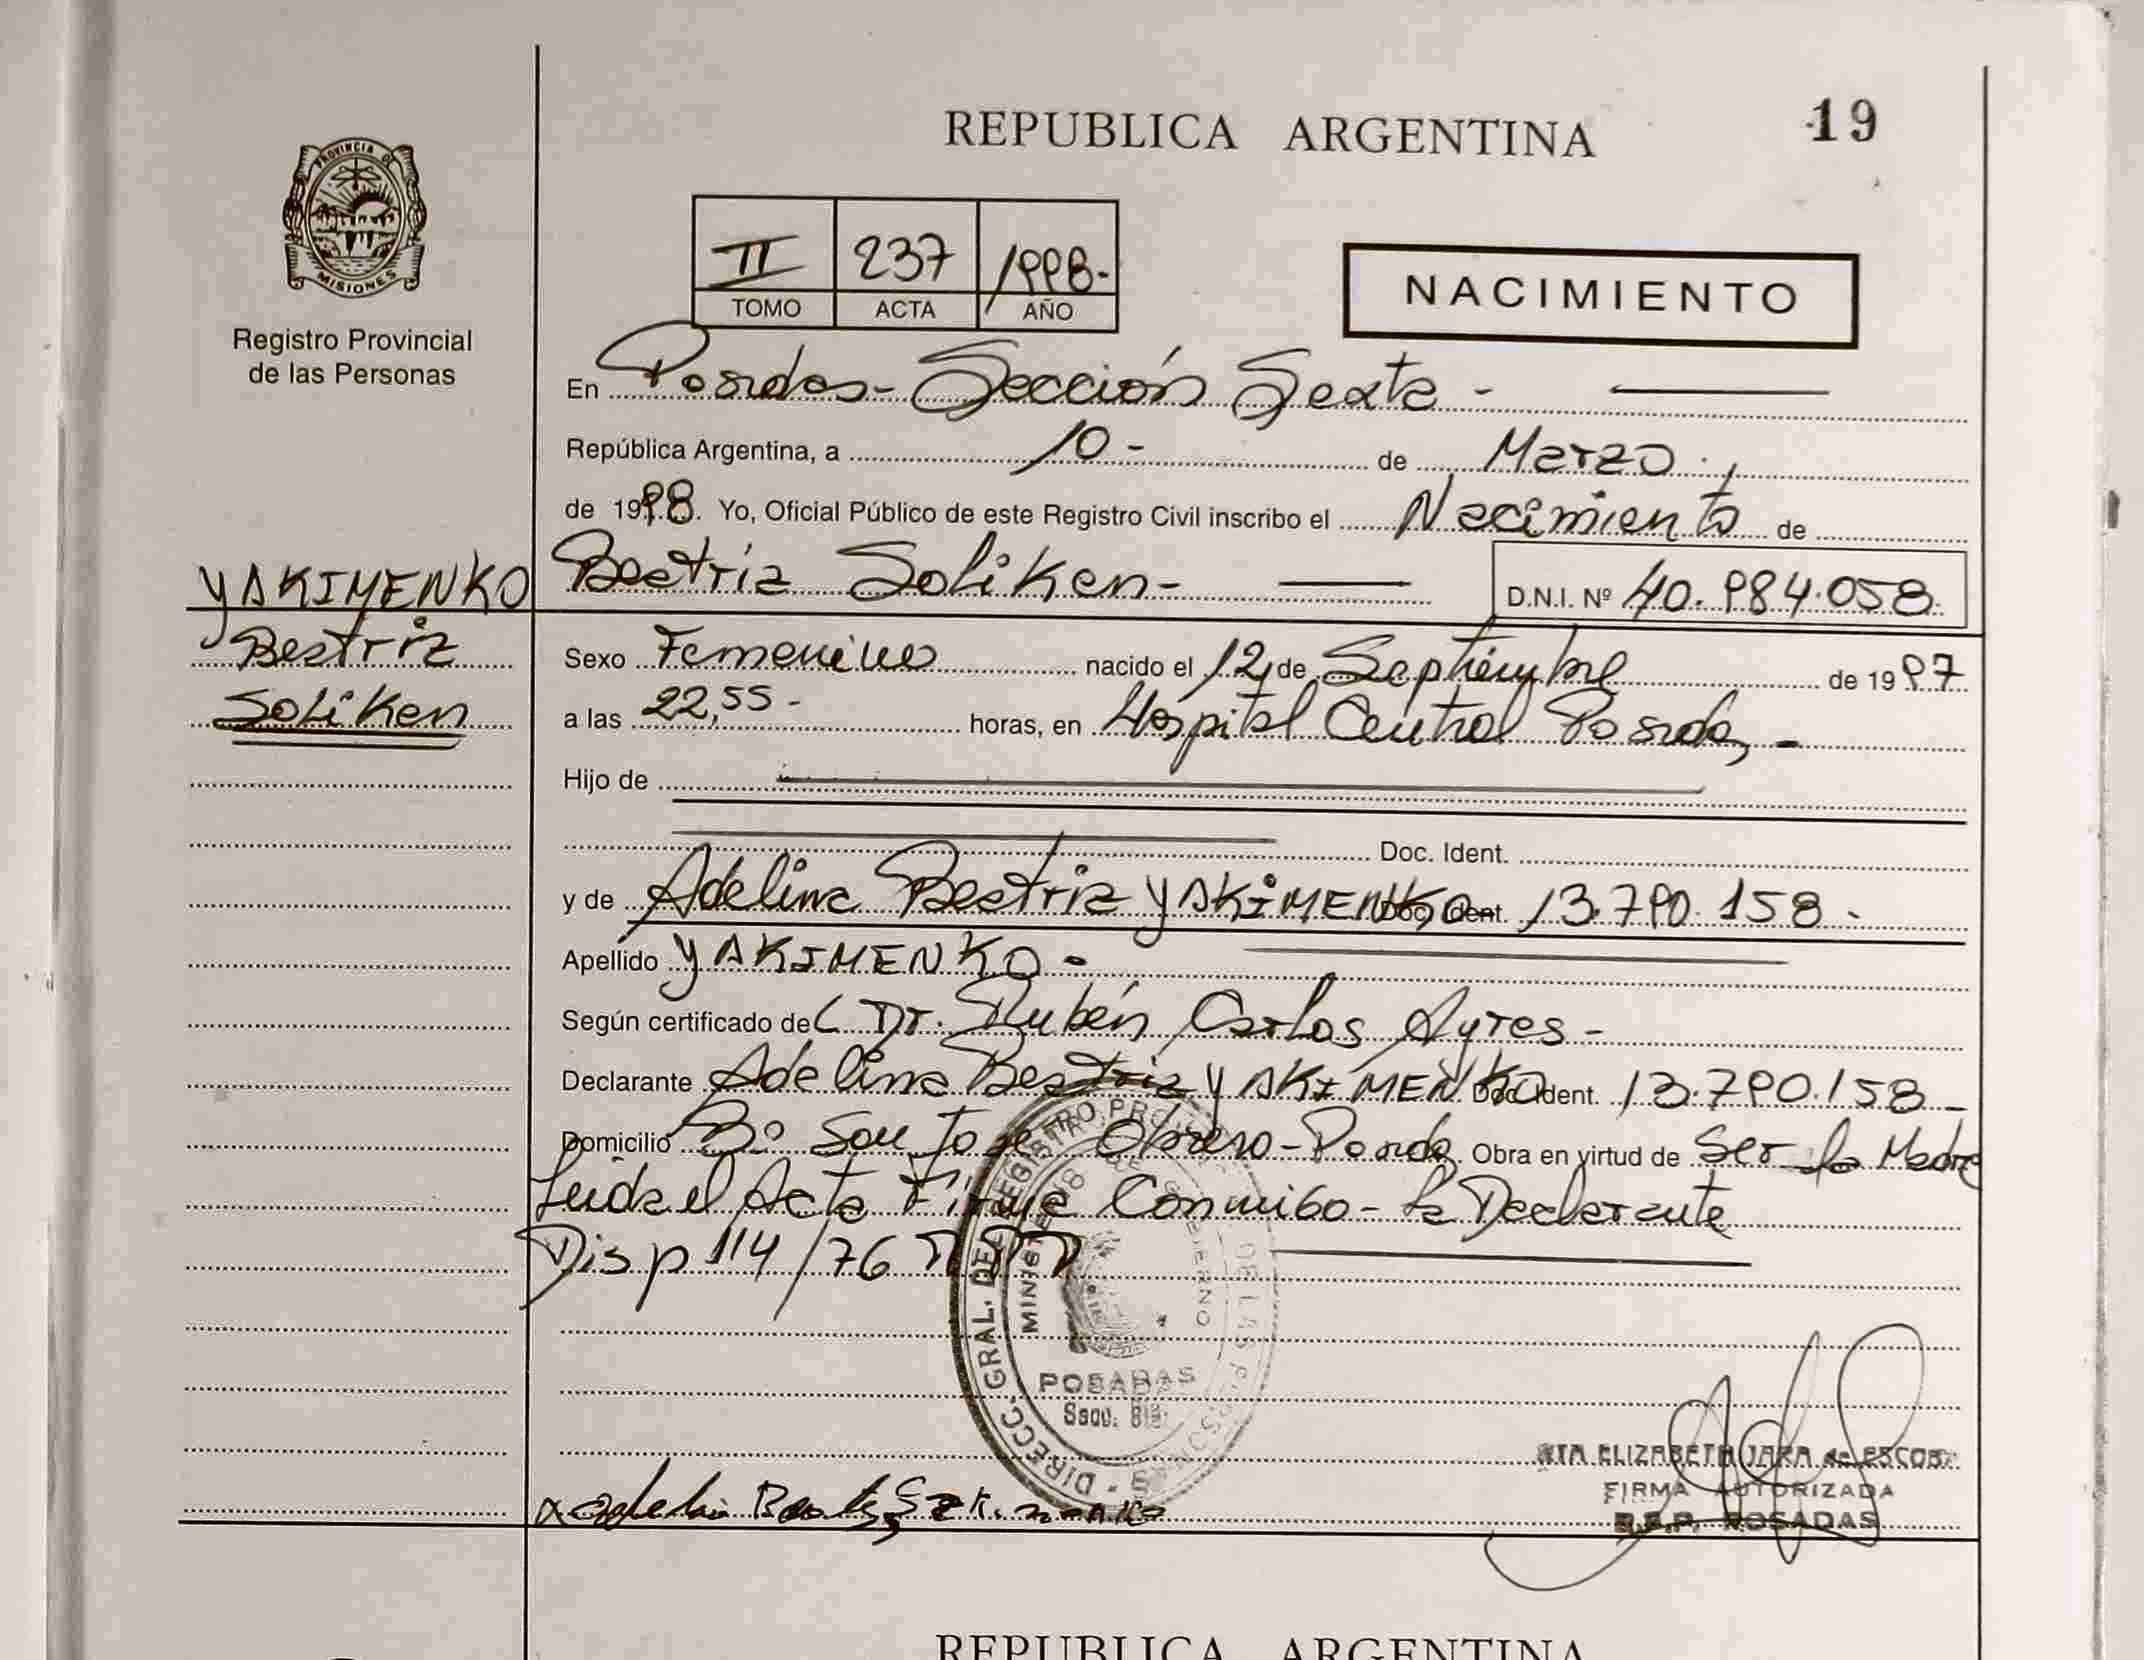 REPUBLICA ARGENTINA
19
PROVINCIA DE
MISIONES
Registro Provincial
de las Personas
II 237 1998-
TOMO ACTA AÑO
NACIMIENTO
En Posadas - Sección Sexta -
República Argentina, a 10 - de Marzo
de 1998. Yo, Oficial Público de este Registro Civil inscribo el Nacimiento de
YAKIMENKO
Beatriz
Soliken
Beatriz Soliken - D.N.I. Nº 40.984.058.
Sexo Femenino nacido el 12, de Septiembre de 1997
a las 22,55 - horas, en Hospital Central Posadas -
Hijo de
Doc. Ident.
y de Adelina Beatriz YAKIMENKO Doc. Ident. 13.790.158 -
Apellido YAKIMENKO -
Según certificado del Dr. Rubén Carlos Ayres -
Declarante Adelina Beatriz YAKIMENKO Doc. Ident. 13.790.158 -
Domicilio Bº San José Obrero - Posadas. Obra en virtud de Ser la Madre
Leida el Acta Firma Conmigo - la Declarante
Disp 114/76
DIRECC. GRAL. DEL REGISTRO PROVINCIAL DE LAS PERSONAS
MINISTERIO DE GOBIERNO
POSADAS
ELIZABETH JARA de ESCOB
FIRMA AUTORIZADA
POSADAS
REPUBLICA ARGENTINA